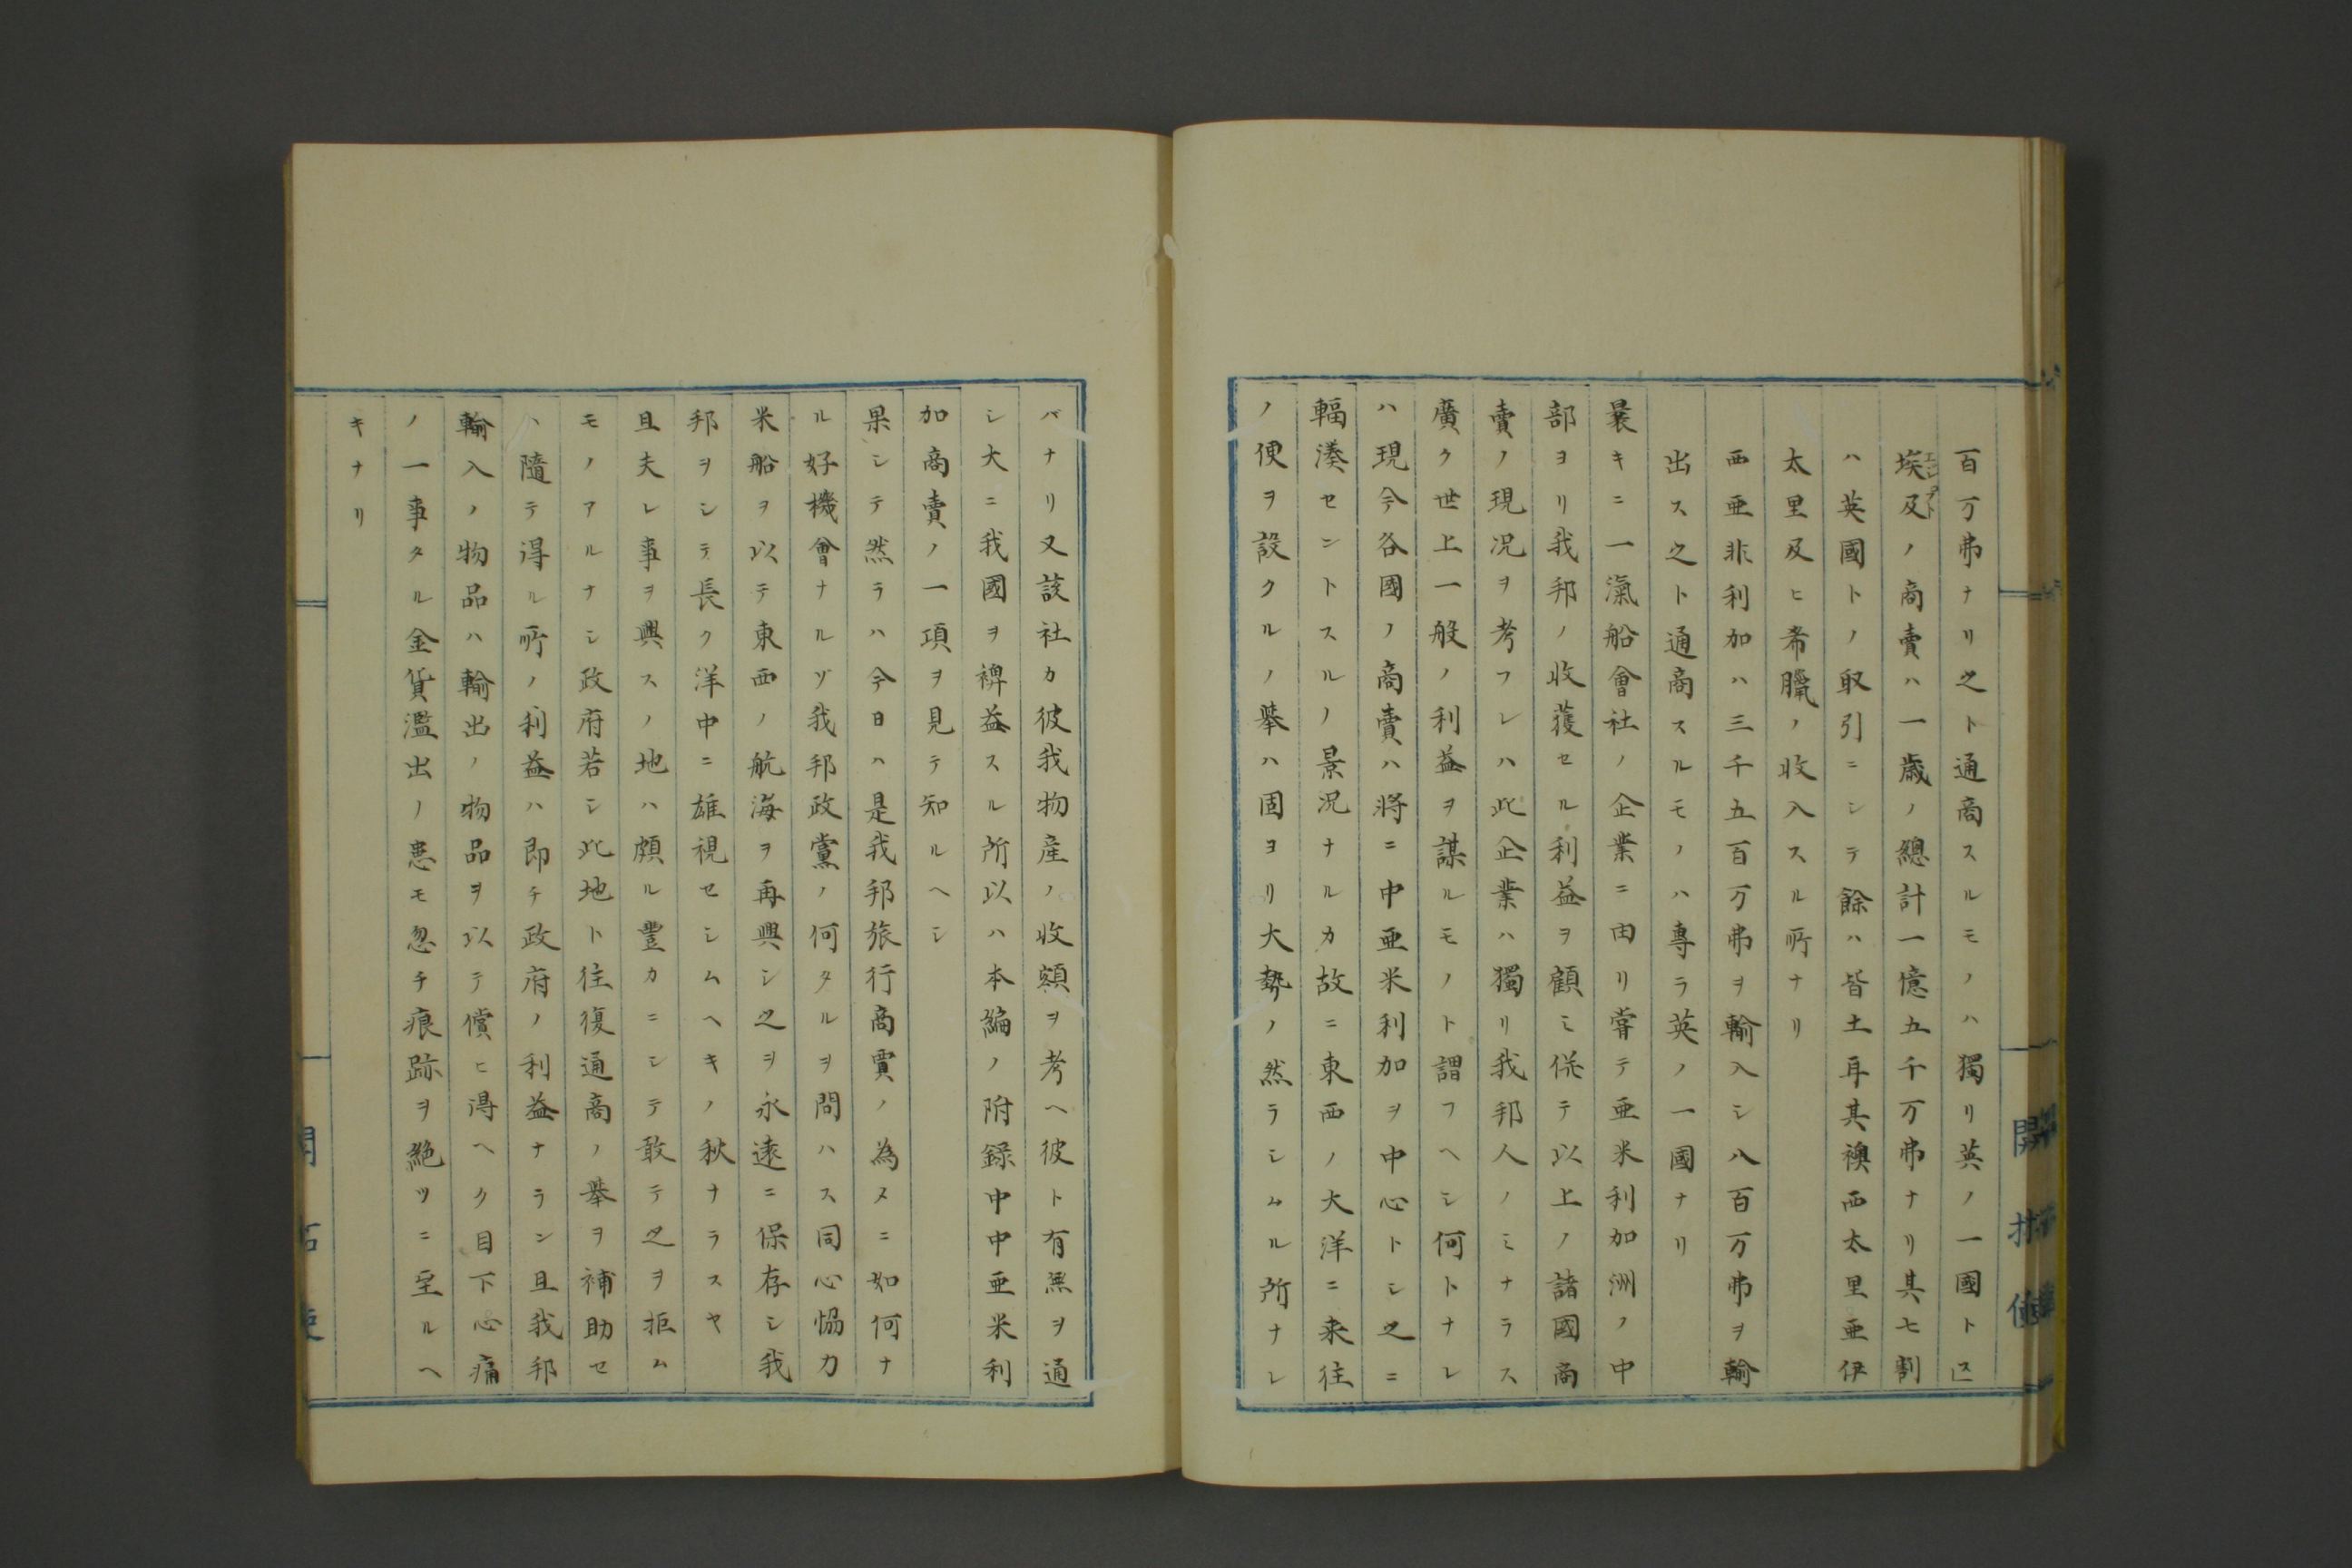 百万弗ナリ之ト通商スルモノハ獨リ英ノ一國トス
埃及ノ商賣ハ一歳ノ總計一億五千万弗ナリ其七割
エジプト
ハ英國トノ取引ニシテ餘ハ皆土耳其襖西太里亜伊
太里及ヒ希臘ノ收入スル所ナリ
西亜非利加ハ三千五百万弗ヲ輸入シ八百万弗ヲ輸
出ス之ト通商スルモノハ專ラ英ノ一國ナリ
曩キニ一滊船會社ノ企業ニ由リ甞テ亜米利加洲ノ中
部ヨリ我邦ノ收獲セル利益ヲ顧ミ併テ以上ノ諸國商
賣ノ現况ヲ考フレハ此企業ハ獨リ我邦人ノミナラス
廣ク世上一般ノ利益ヲ謀ルモノト謂フヘシ何トナレ
ハ現今各國ノ商賣ハ將ニ中亜米利加ヲ中心トシ之ニ
輻湊セントスルノ景况ナルカ故ニ東西ノ大洋ニ来往
ノ便ヲ設クルノ擧ハ固ヨリ大勢ノ然ラシムル所ナレ
バナリ又該社カ彼我物産ノ收額ヲ考ヘ彼ト有無ヲ通
シ大ニ我國ヲ裨益スル所以ハ本編ノ附録中中亜米利
加商賣ノ一項ヲ見テ知ルヘシ
果シテ然ラハ今日ハ是我邦旅行商賈ノ為メニ如何ナ
ル好機會ナルゾ我邦政黨ノ何タルヲ問ハス同心恊力
米船ヲ以テ東西ノ航海ヲ再興シ之ヲ永遠ニ保存シ我
邦ヲシテ長ク洋中ニ雄視セシムヘキノ秋ナラスヤ
且夫レ事ヲ興スノ地ハ頗ル豐カニシテ敢テ之ヲ拒ム
モノアルナシ政府若シ此地ト往復通商ノ擧ヲ補助セ
ハ隨テ得ル所ノ利益ハ即チ政府ノ利益ナラン且我邦
輸入ノ物品ハ輸出ノ物品ヲ以テ償ヒ得ヘク目下心痛
ノ一事タル金貨濫出ノ患モ忽チ痕跡ヲ絶ツニ至ルヘ
キナリ
開拓使